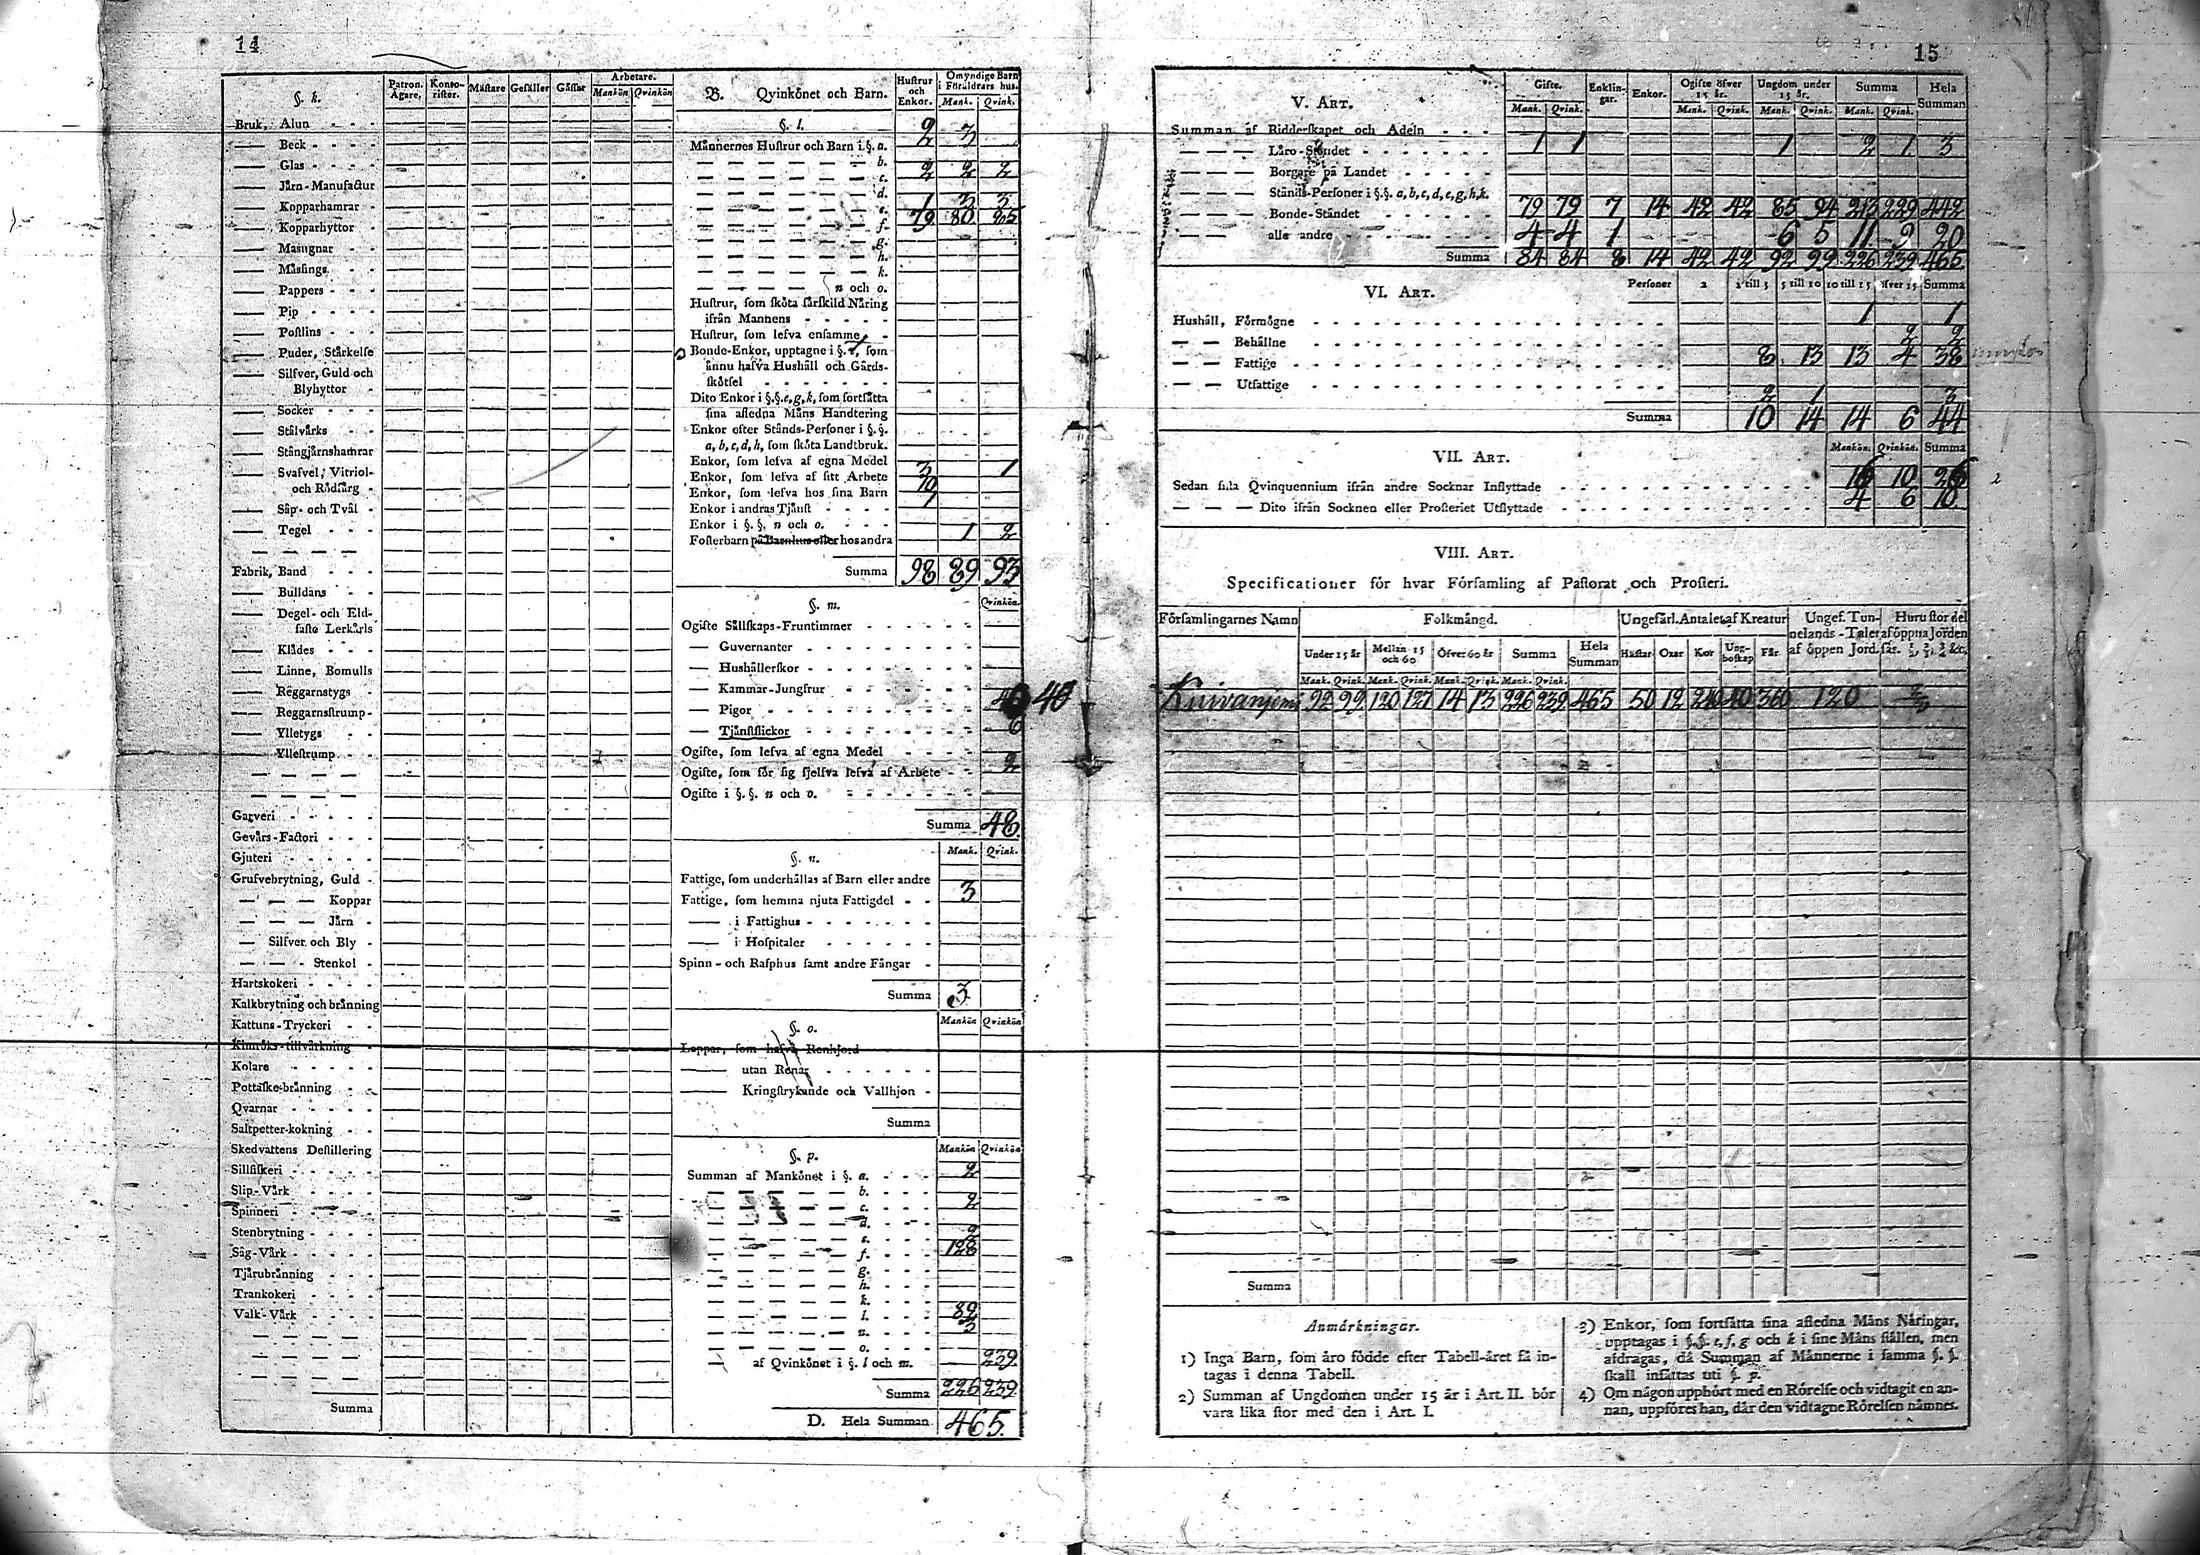 14
§. k.
Patron. Ägare.
Konto-rister.
Mästare
Gesäller
Gåssar
Arbetare.
Mankön Qvinkön
Bruk, Alun
Beck
Glas
Jårn-Manufactur
Kopparhamrar
Kopparhyttor
Masugnar
Måssings
Pappers
Pip
Postlins
Puder, Stårkelse
Silfver, Guld och
Blyhyttor
Socker
Stålvårks
Stångjårnshamrar
Svafvel, Vitriol-
och Rödfårg
Såp- och Tvål
Tegel
Fabrik, Band
Bulldans
Degel- och Eld-
faste Lerkårls
Klådes
Linne, Bomulls
Reggarnstygs
Reggarnsstrump-
Ylletygs
Yllestrump
Garveri
Gevårs-Factori
Gjuteri
Grufvebrytning, Guld
Koppar
Jårn
Silfver och Bly
Stenkol
Hartskokeri
Kalkbrytning och brånning
Kattuns-Tryckeri
Kimröks-tillvårkning
Kolare
Pottaske-brånning
Qvarnar
Saltpetter-kokning
Skedvattens Destillering
Sillfiskeri
Slip-Vårk
Spinneri
Stenbrytning
Såg-Vårk
Tjårubrånning
Trankokeri
Valk-Vårk
Summa
B. Qvinkönet och Barn.
Hustrur och Enkor.
Omyndige Barn i Föräldrars hus.
Mank. Qvink.
§. l.
Månnernes Hustrur och Barn i §. a. 2 3
b.
c. 2 2 2
d.
e. 1 3 3
f. 79 80 85
g.
h.
k.
n och o.
Hustrur, som sköta sårskild Nåring
ifrån Mannens
Hustrur, som lefva ensamme
Bonde-Enkor, upptagne i §. f, som
ånnu hafva Hushåll och Gårds-
skötsel
Dito Enkor i §.§. e, g, k, som fortsåtta
sina afledna Måns Handtering
Enkor efter Stånds-Personer i §.§.
a, b, c, d, h, som sköta Landtbruk.
Enkor, som lefva af egna Medel 3 1
Enkor, som lefva af sitt Arbete 10
Enkor, som lefva hos sina Barn 1
Enkor i andras Tjånst
Enkor i §.§. n och o.
Fosterbarn på Barnhus eller hos andra 1 2
Summa 98 89 93
§. m.
Qvinkön.
Ogifte Sållskaps-Fruntimmer
Guvernanter
Hushållerskor
Kammar-Jungfrur
Pigor 40
Tjånstflickor 6
Ogifte, som lefva af egna Medel
Ogifte, som för sig sjelfva lefva af Arbete 2
Ogifte i §.§. n och o.
Summa 48
§. n.
Mank. Qvink.
Fattige, som underhållas af Barn eller andre
Fattige, som hemma njuta Fattigdel 3
i Fattighus
i Hospitaler
Spinn- och Rasphus samt andre Fångar
Summa 3
§. o.
Mankön Qvinkön
Lappar, som hafva Renhjord
utan Renar
Kringstrykande och Vallhjon
Summa
§. p.
Mankön Qvinkön
Summan af Mankönet i §. a. 2
b.
c. 2
d.
e. 2
f. 128
g.
h.
k.
l. 89
n. 3
o.
af Qvinkönet i §. l och m. 239
Summa 226 239
D. Hela Summan 465
15
V. ART.
Gifte. Enklin-gar. Enkor. Ogifte öfver 15 år. Ungdom under 15 år. Summa Hela Summan
Mank. Qvink. Mank. Qvink. Mank. Qvink. Mank. Qvink.
Summan af Ridderskapet och Adeln
Låro-Ståndet 1 1 1 2 1 3
Borgare på Landet
Stånds-Personer i §.§. a, b, c, d, e, g, h, k.
Bonde-Ståndet 79 79 7 14 42 42 85 94 213 229 442
alle andre 4 4 1 6 5 11 9 20
Summa 84 84 8 14 42 42 92 99 226 239 465
VI. ART.
Personer 2 2 till 5 5 till 10 10 till 15 öfver 15 Summa
Hushåll, Förmögne 1 1
Behållne 2 2
Fattige 8 13 13 4 38
Utfattige 2 1 3
Summa 10 14 14 6 44
VII. ART.
Mankön. Qvinkön. Summa
Sedan sista Qvinquennium ifrån andre Socknar Inflyttade 16 10 26
Dito ifrån Socknen eller Prosteriet Utflyttade 4 6 10
VIII. ART.
Specificationer för hvar Församling af Pastorat och Prosteri.
Församlingarnes Namn
Folkmångd.
Ungefärl. Antalet af Kreatur
Ungef. Tun-nelands-Talet af öppen Jord.
Huru stor del af öppna Jorden sås. ½, ⅔, ¾ &c.
Under 15 år Mellan 15 och 60 Öfver 60 år Summa Hela Summan Hästar Oxar Kor Ung-boskap Får.
Mank. Qvink. Mank. Qvink. Mank. Qvink. Mank. Qvink.
Kuivaniemi 92 99 120 127 14 13 226 239 465 50 12 240 40 360 120
Summa
Anmårkningar.
1) Inga Barn, som åro födde efter Tabell-året få in-
tagas i denna Tabell.
2) Summan af Ungdomen under 15 år i Art. II. bör
vara lika stor med den i Art. I.
3) Enkor, som fortsåtta sina afledna Måns Nåringar,
upptagas i §.§. e, f, g och k i sine Måns stållen, men
afdragas, då Summan af Månnerne i samma §. §.
skall insåttas uti §. p.
4) Om någon upphört med en Rörelse och vidtagit en an-
nan, uppföres han, där den vidtagne Rörelsen nåmnes.